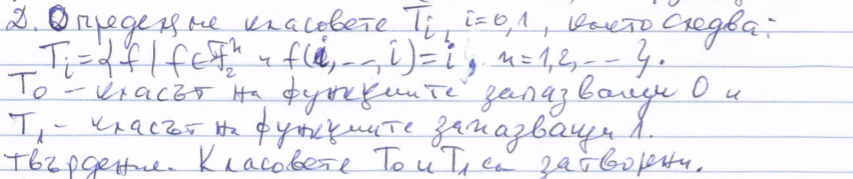 2. Определяне класовете Ti, i=0,1, както следва:
Ti = {f | f∈F₂ⁿ и f(i,...,i)=i, n=1,2,...}.
T0 – класът на функциите запазващи 0 и
T1 – класът на функциите запазващи 1.
твърдение. Класовете T0 и T1 са затворени.